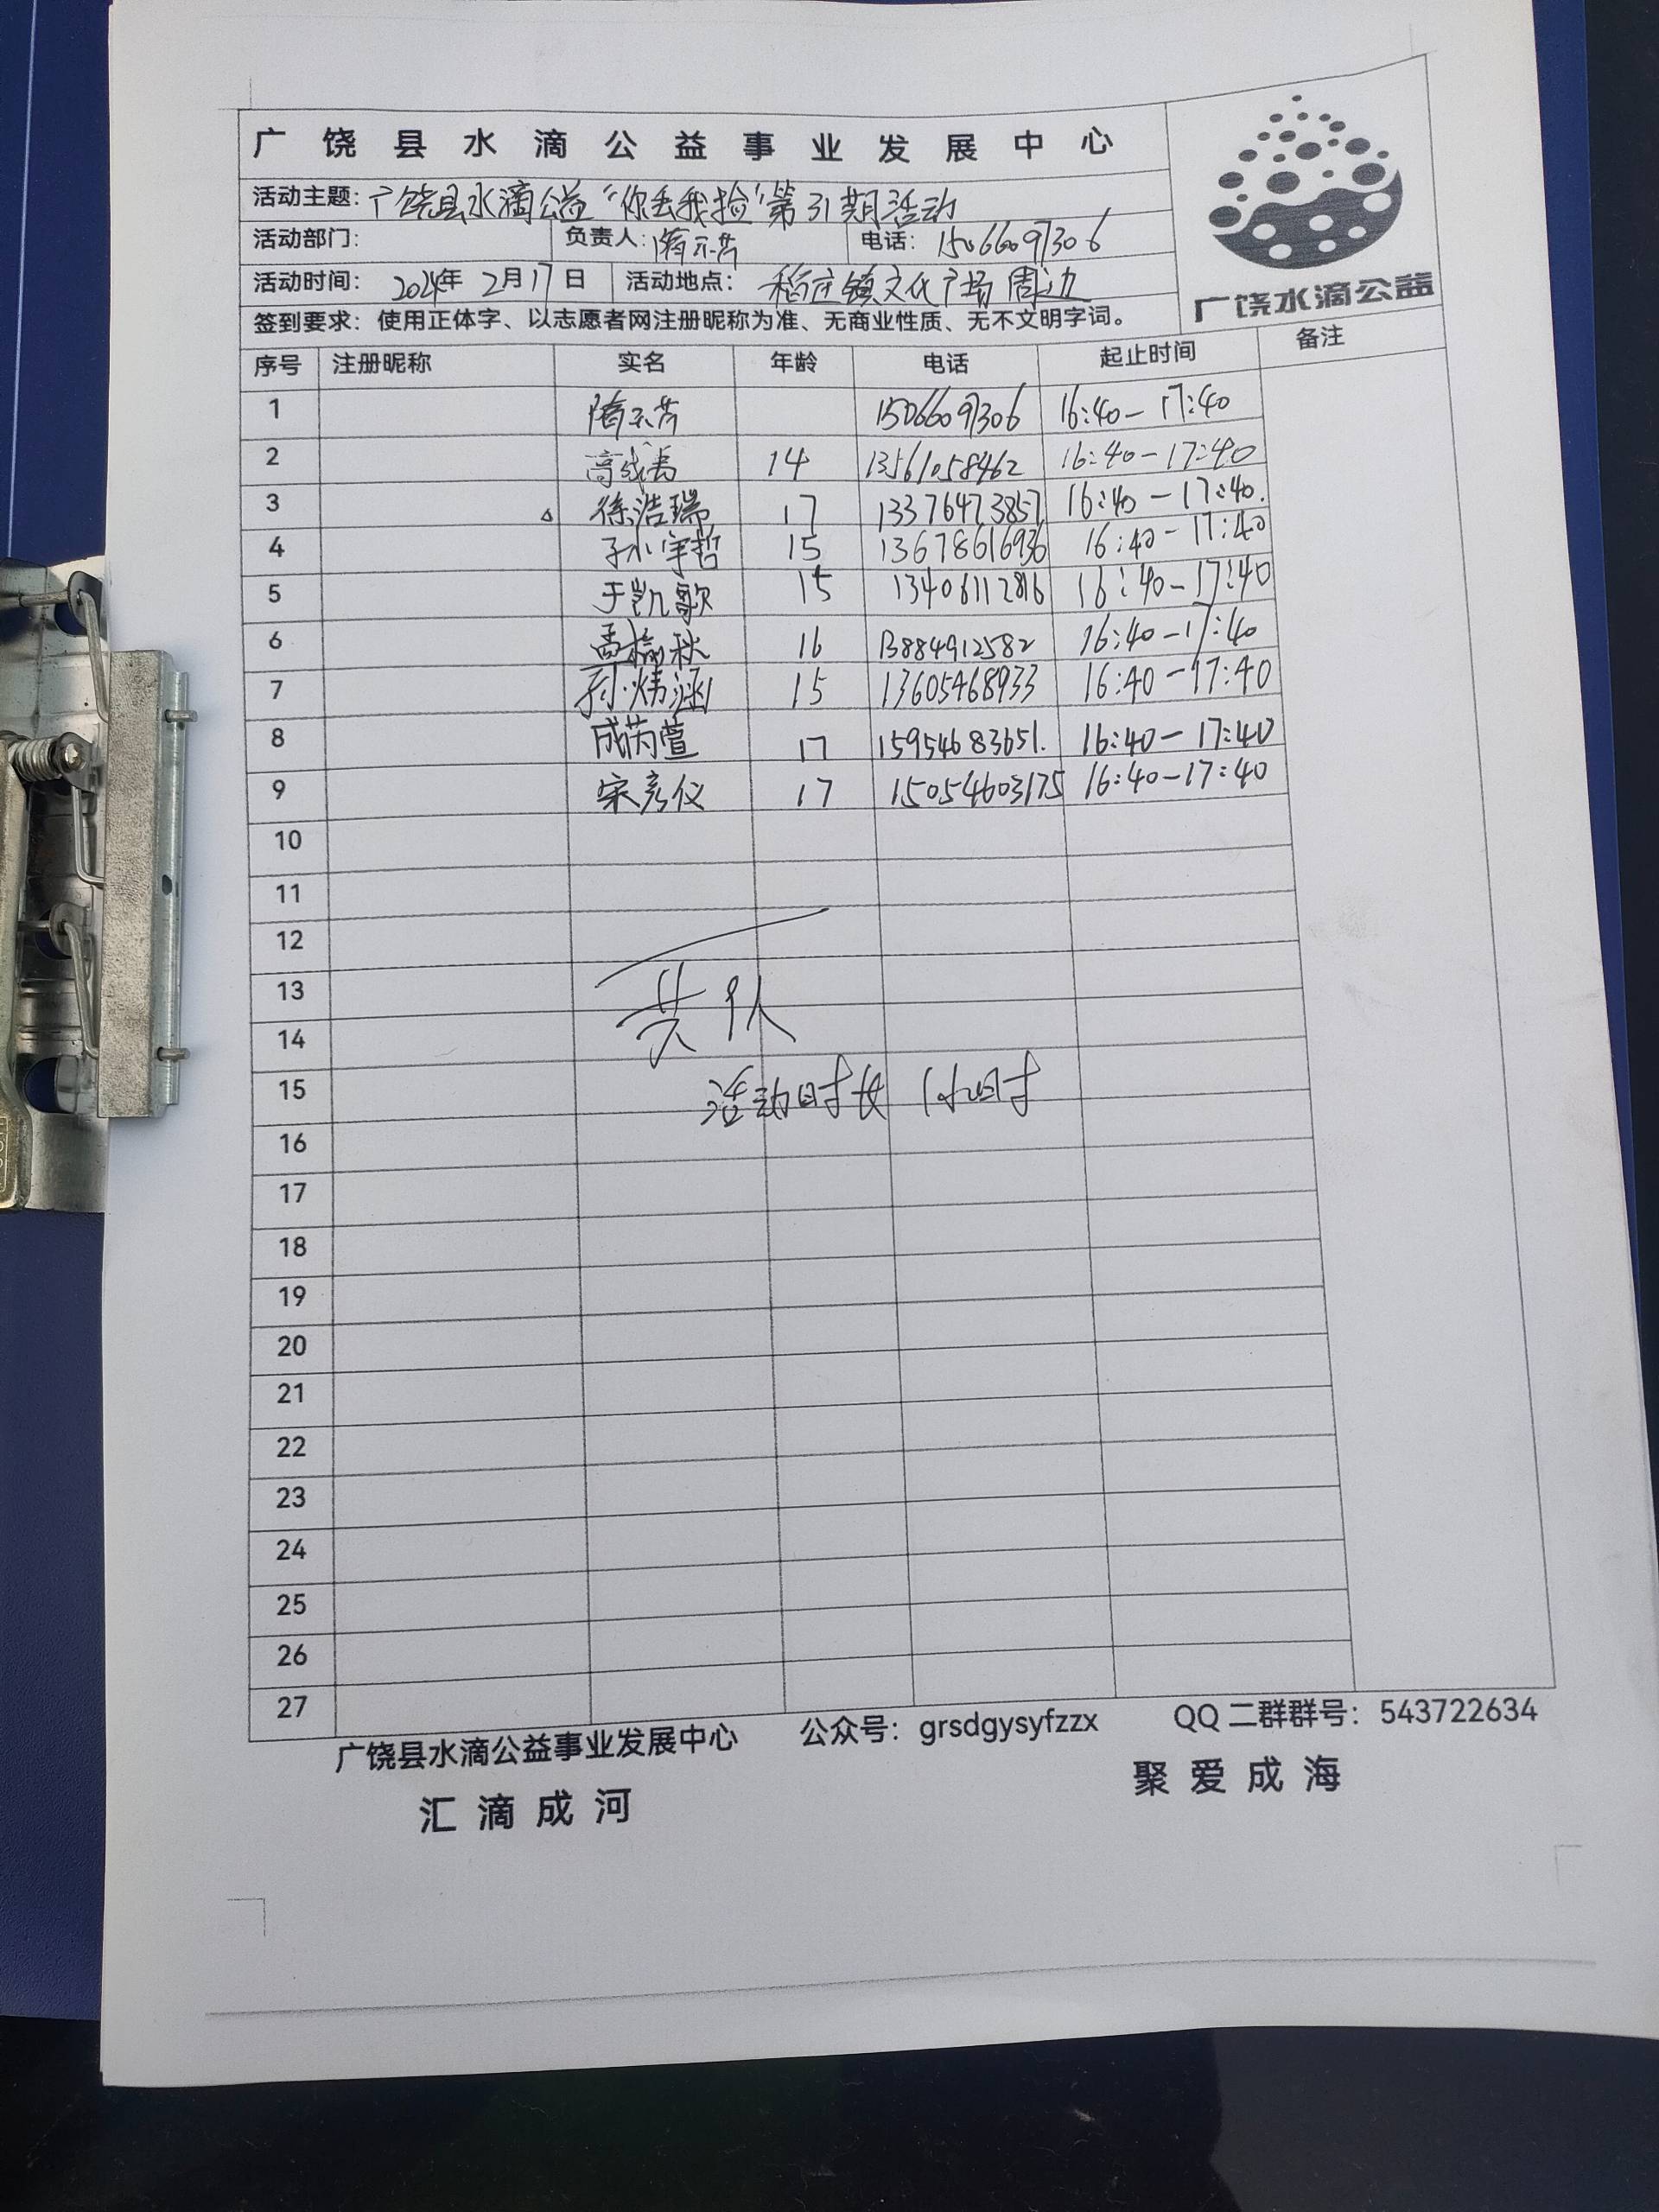 广饶县水滴公益事业发展中心
活动主题：广饶县水滴公益“你丢我捡”第31期活动
活动部门： 负责人： 电话：15066097306
活动时间：2024年2月17日 活动地点：稻庄镇文化广场周边
广饶水滴公益
签到要求：使用正体字、以志愿者网注册昵称为准、无商业性质、无不文明字词。
序号 注册昵称 实名 年龄 电话 起止时间 备注
1 15066097306 16:40-17:40
2 14 13561058462 16:40-17:40
3 徐浩瑞 17 13376473857 16:40-17:40.
4 孙宇哲 15 13678616936 16:40-17:40
5 于凯歌 15 13406112816 16:40-17:40
6 16 13884912582 16:40-17:40
7 孙炜涵 15 13605468933 16:40-17:40
8 成芮萱 17 15954683651. 16:40-17:40
9 宋彦仪 17 15054603175 16:40-17:40
10
11
12
13
共9人
14
15
活动时长 1小时
16
17
18
19
20
21
22
23
24
25
26
27
广饶县水滴公益事业发展中心 公众号：grsdgysyfzzx QQ二群群号：543722634
汇滴成河 聚爱成海